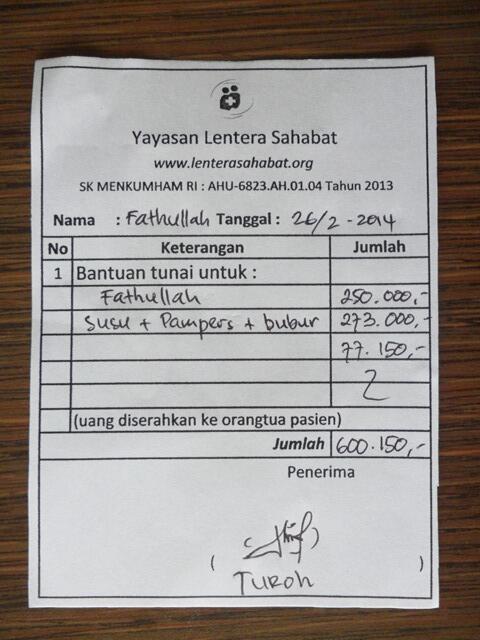 Yayasan Lentera Sahabat
www.lenterasahabat.org
SK MENKUMHAM RI : AHU-6823.AH.01.04 Tahun 2013
Nama : Fathullah Tanggal : 26/2 - 2014
No Keterangan Jumlah
1 Bantuan tunai untuk :
Fathullah 250.000,-
Susu + Pampers + bubur 273.000,-
77.150,-
(uang diserahkan ke orangtua pasien)
Jumlah 600.150,-
Penerima
( )
TUROH